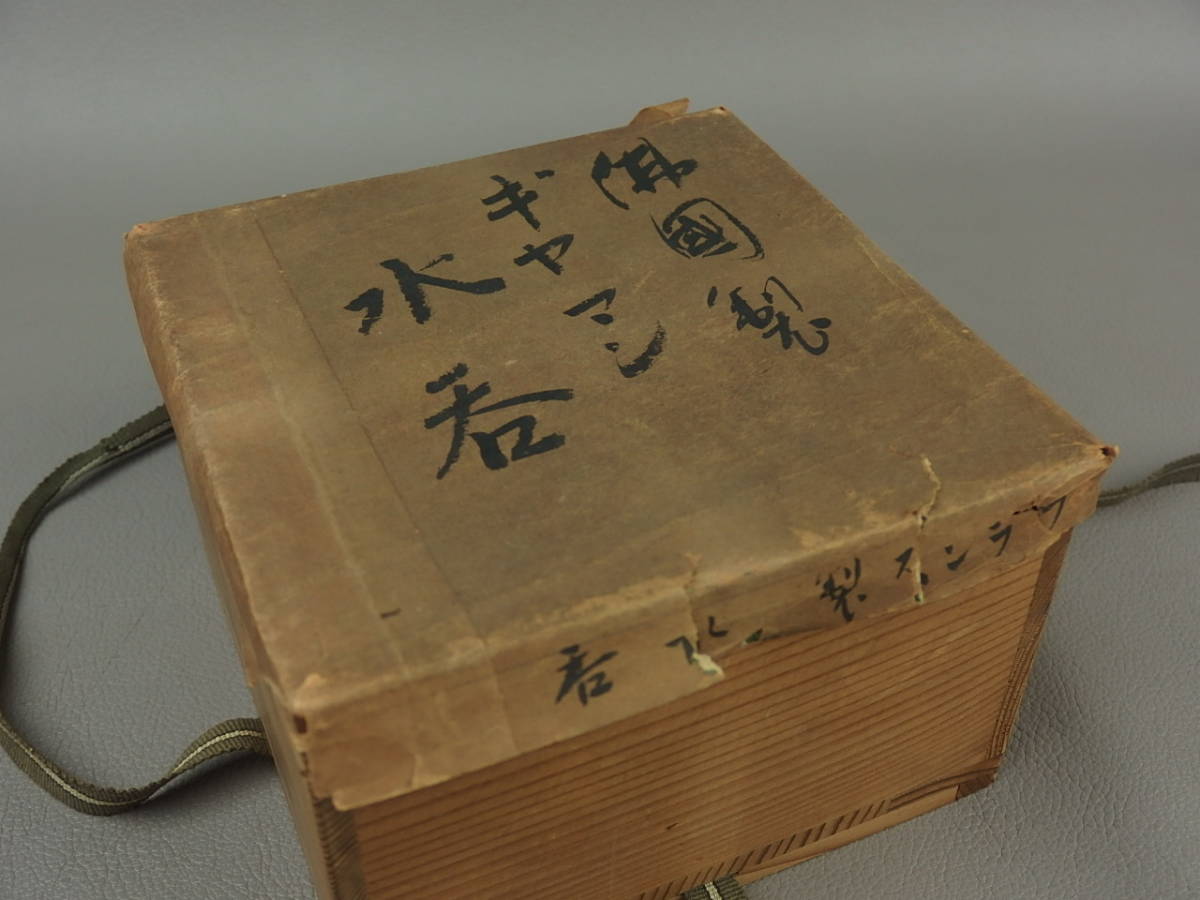 佛國製
ギヤマン
水呑
フランス製 コツ呑